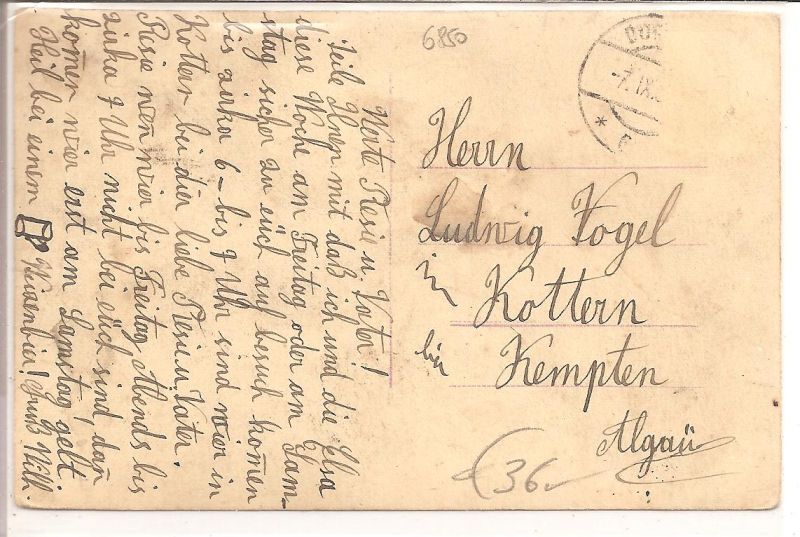 Werte Resi u. Vater!
Teile Ihnen mit daß ich und die Elsa
diese Woche am Freitag oder am Sam-
stag sicher zu euch auf besuch komen
bis zirka 6- bis 9 Uhr sind wier in
Kotter bei dier liebe Resi u. Vater.
Resie wen wier bis Freitag Abends bis
zirka 9 Uhr nicht bei euch sind, dan
komer wier erst am Samstag gelt
Heil bei einem Weisenbier! Gruß Will.
6850
7. IX.
Herrn
Ludwig Vogel
in Kottern
bei Kempten
Algäu
36